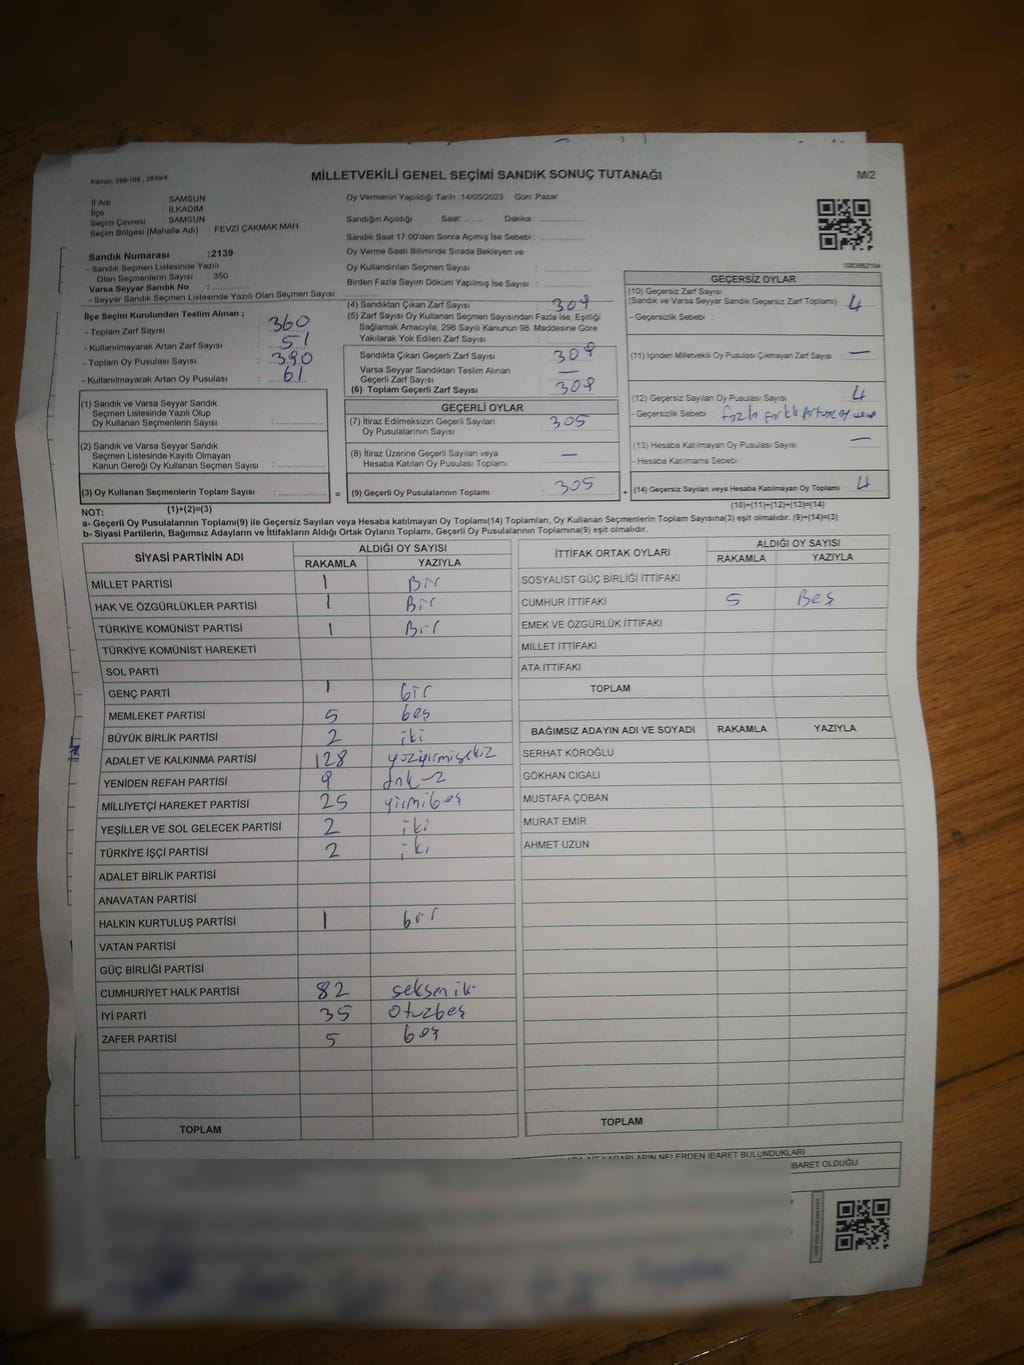 Kanun: 298/105, 2839/4
MİLLETVEKİLİ GENEL SEÇİMİ SANDIK SONUÇ TUTANAĞI
M/2
İl Adı : SAMSUN
İlçe : İLKADIM
Seçim Çevresi : SAMSUN
Seçim Bölgesi (Mahalle Adı) : FEVZİ ÇAKMAK MAH.
Oy Vermenin Yapıldığı Tarih : 14/05/2023 Gün: Pazar
Sandığın Açıldığı Saat: ........ Dakika : ................
Sandık Saat 17:00'den Sonra Açımış İse Sebebi : ................
Oy Verme Saati Bitiminde Sırada Bekleyen ve
Oy Kullandırılan Seçmen Sayısı : ................
Birden Fazla Sayım Döküm Yapılmış İse Sayısı : ................
1083862104
Sandık Numarası :2139
- Sandık Seçmen Listesinde Yazılı
Olan Seçmenlerin Sayısı : 350
Varsa Seyyar Sandık No : ................
- Seyyar Sandık Seçmen Listesinde Yazılı Olan Seçmen Sayısı: ................
İlçe Seçim Kurulundan Teslim Alınan ;
- Toplam Zarf Sayısı : 360
- Kullanılmayarak Artan Zarf Sayısı : 51
- Toplam Oy Pusulası Sayısı : 390
- Kullanılmayarak Artan Oy Pusulası : 61
(1) Sandık ve Varsa Seyyar Sandık
Seçmen Listesinde Yazılı Olup
Oy Kullanan Seçmenlerin Sayısı : ................
(2) Sandık ve Varsa Seyyar Sandık
Seçmen Listesinde Kayıtlı Olmayan
Kanun Gereği Oy Kullanan Seçmen Sayısı : ................
(3) Oy Kullanan Seçmenlerin Toplam Sayısı : ................
(1)+(2)=(3)
(4) Sandıktan Çıkan Zarf Sayısı : 309
(5) Zarf Sayısı Oy Kullanan Seçmen Sayısından Fazla İse, Eşitliği
Sağlamak Amacıyla; 298 Sayılı Kanunun 98. Maddesine Göre
Yakılarak Yok Edilen Zarf Sayısı : ................
Sandıkta Çıkan Geçerli Zarf Sayısı : 309
Varsa Seyyar Sandıktan Teslim Alınan
Geçerli Zarf Sayısı : —
(6) Toplam Geçerli Zarf Sayısı : 309
GEÇERLİ OYLAR
(7) İtiraz Edilmeksizin Geçerli Sayılan
Oy Pusulalarının Sayısı : 305
(8) İtiraz Üzerine Geçerli Sayılan veya
Hesaba Katılan Oy Pusulası Toplamı : —
= (9) Geçerli Oy Pusulalarının Toplamı : 305
GEÇERSİZ OYLAR
(10) Geçersiz Zarf Sayısı
(Sandık ve Varsa Seyyar Sandık Geçersiz Zarf Toplamı) : 4
- Geçersizlik Sebebi :
(11) İçinden Milletvekili Oy Pusulası Çıkmayan Zarf Sayısı : —
(12) Geçersiz Sayılan Oy Pusulası Sayısı : 4
- Geçersizlik Sebebi :
(13) Hesaba Katılmayan Oy Pusulası Sayısı : —
- Hesaba Katılmama Sebebi
+ (14) Geçersiz Sayılan veya Hesaba Katılmayan Oy Toplamı : 4
(10)+(11)+(12)+(13)=(14)
NOT:
a- Geçerli Oy Pusulalarının Toplamı(9) ile Geçersiz Sayılan veya Hesaba katılmayan Oy Toplamı(14) Toplamları, Oy Kullanan Seçmenlerin Toplam Sayısına(3) eşit olmalıdır. (9)+(14)=(3)
b- Siyasi Partilerin, Bağımsız Adayların ve İttifakların Aldığı Ortak Oyların Toplamı, Geçerli Oy Pusulalarının Toplamına(9) eşit olmalıdır.
SİYASİ PARTİNİN ADI ALDIĞI OY SAYISI
RAKAMLA YAZIYLA
MİLLET PARTİSİ 1 Bir
HAK VE ÖZGÜRLÜKLER PARTİSİ 1 Bir
TÜRKİYE KOMÜNİST PARTİSİ 1 Bir
TÜRKİYE KOMÜNİST HAREKETİ
SOL PARTİ
GENÇ PARTİ 1 bir
MEMLEKET PARTİSİ 5 beş
BÜYÜK BİRLİK PARTİSİ 2 iki
ADALET VE KALKINMA PARTİSİ 128 yüzyirmisekiz
YENİDEN REFAH PARTİSİ 9
MİLLİYETÇİ HAREKET PARTİSİ 25 yirmibeş
YEŞİLLER VE SOL GELECEK PARTİSİ 2 iki
TÜRKİYE İŞÇİ PARTİSİ 2 iki
ADALET BİRLİK PARTİSİ
ANAVATAN PARTİSİ
HALKIN KURTULUŞ PARTİSİ 1 bir
VATAN PARTİSİ
GÜÇ BİRLİĞİ PARTİSİ
CUMHURİYET HALK PARTİSİ 82 seksenik
İYİ PARTİ 35 Otuzbeş
ZAFER PARTİSİ 5 beş
TOPLAM
İTTİFAK ORTAK OYLARI ALDIĞI OY SAYISI
RAKAMLA YAZIYLA
SOSYALİST GÜÇ BİRLİĞİ İTTİFAKI
CUMHUR İTTİFAKI 5 Beş
EMEK VE ÖZGÜRLÜK İTTİFAKI
MİLLET İTTİFAKI
ATA İTTİFAKI
TOPLAM
BAĞIMSIZ ADAYIN ADI VE SOYADI RAKAMLA YAZIYLA
SERHAT KÖROĞLU
GÖKHAN CIGALI
MUSTAFA ÇOBAN
MURAT EMİR
AHMET UZUN
TOPLAM
KARARLARIN NELERDEN İBARET BULUNDUKLARI
İBARET OLDUĞU